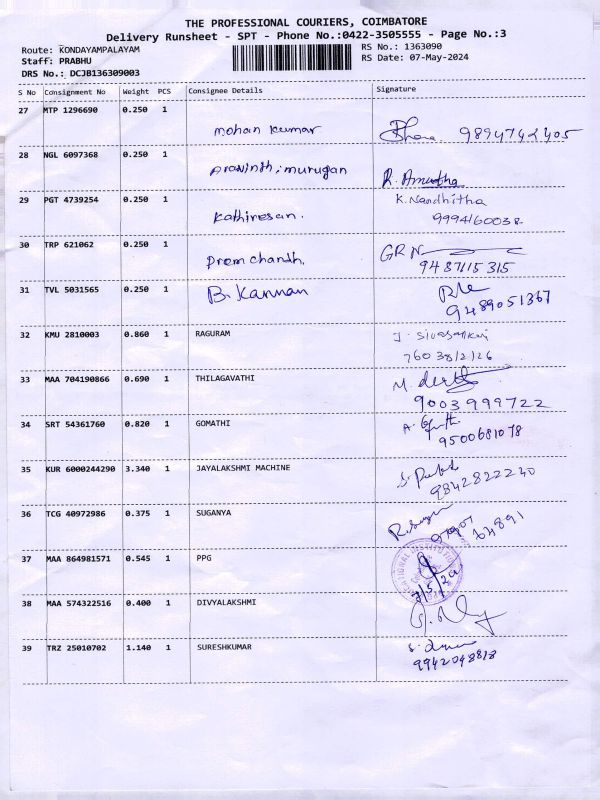 THE PROFESSIONAL COURIERS, COIMBATORE
Delivery Runsheet - SPT - Phone No.:0422-3505555 - Page No.:3
Route: KONDAYAMPALAYAM
RS No.: 1363090
Staff: PRABHU
RS Date: 07-May-2024
DRS No.: DCJB136309003
S No Consignment No Weight PCS Consignee Details Signature
27 MTP 1296690 0.250 1
mohan kumar 9894742405
28 NGL 6097368 0.250 1
pravinth, murugan R. Amutha
29 PGT 4739254 0.250 1 K. Nandhitha
Kathiresan. 9994160038
30 TRP 621062 0.250 1 GRN
Premchandh. 9487115315
31 TVL 5031565 0.250 1 B. Kannan
9489051367
32 KMU 2810003 0.860 1 RAGURAM J. Sivasankari
7603812126
33 MAA 704190866 0.690 1 THILAGAVATHI M.
9003999722
34 SRT 54361760 0.820 1 GOMATHI A.
9500681078
35 KUR 6000244290 3.340 1 JAYALAKSHMI MACHINE S.
9842822240
36 TCG 40972986 0.375 1 SUGANYA
64891
37 MAA 864981571 0.545 1 PPG
38 MAA 574322516 0.400 1 DIVYALAKSHMI
39 TRZ 25010702 1.140 1 SURESHKUMAR S.
9942048818